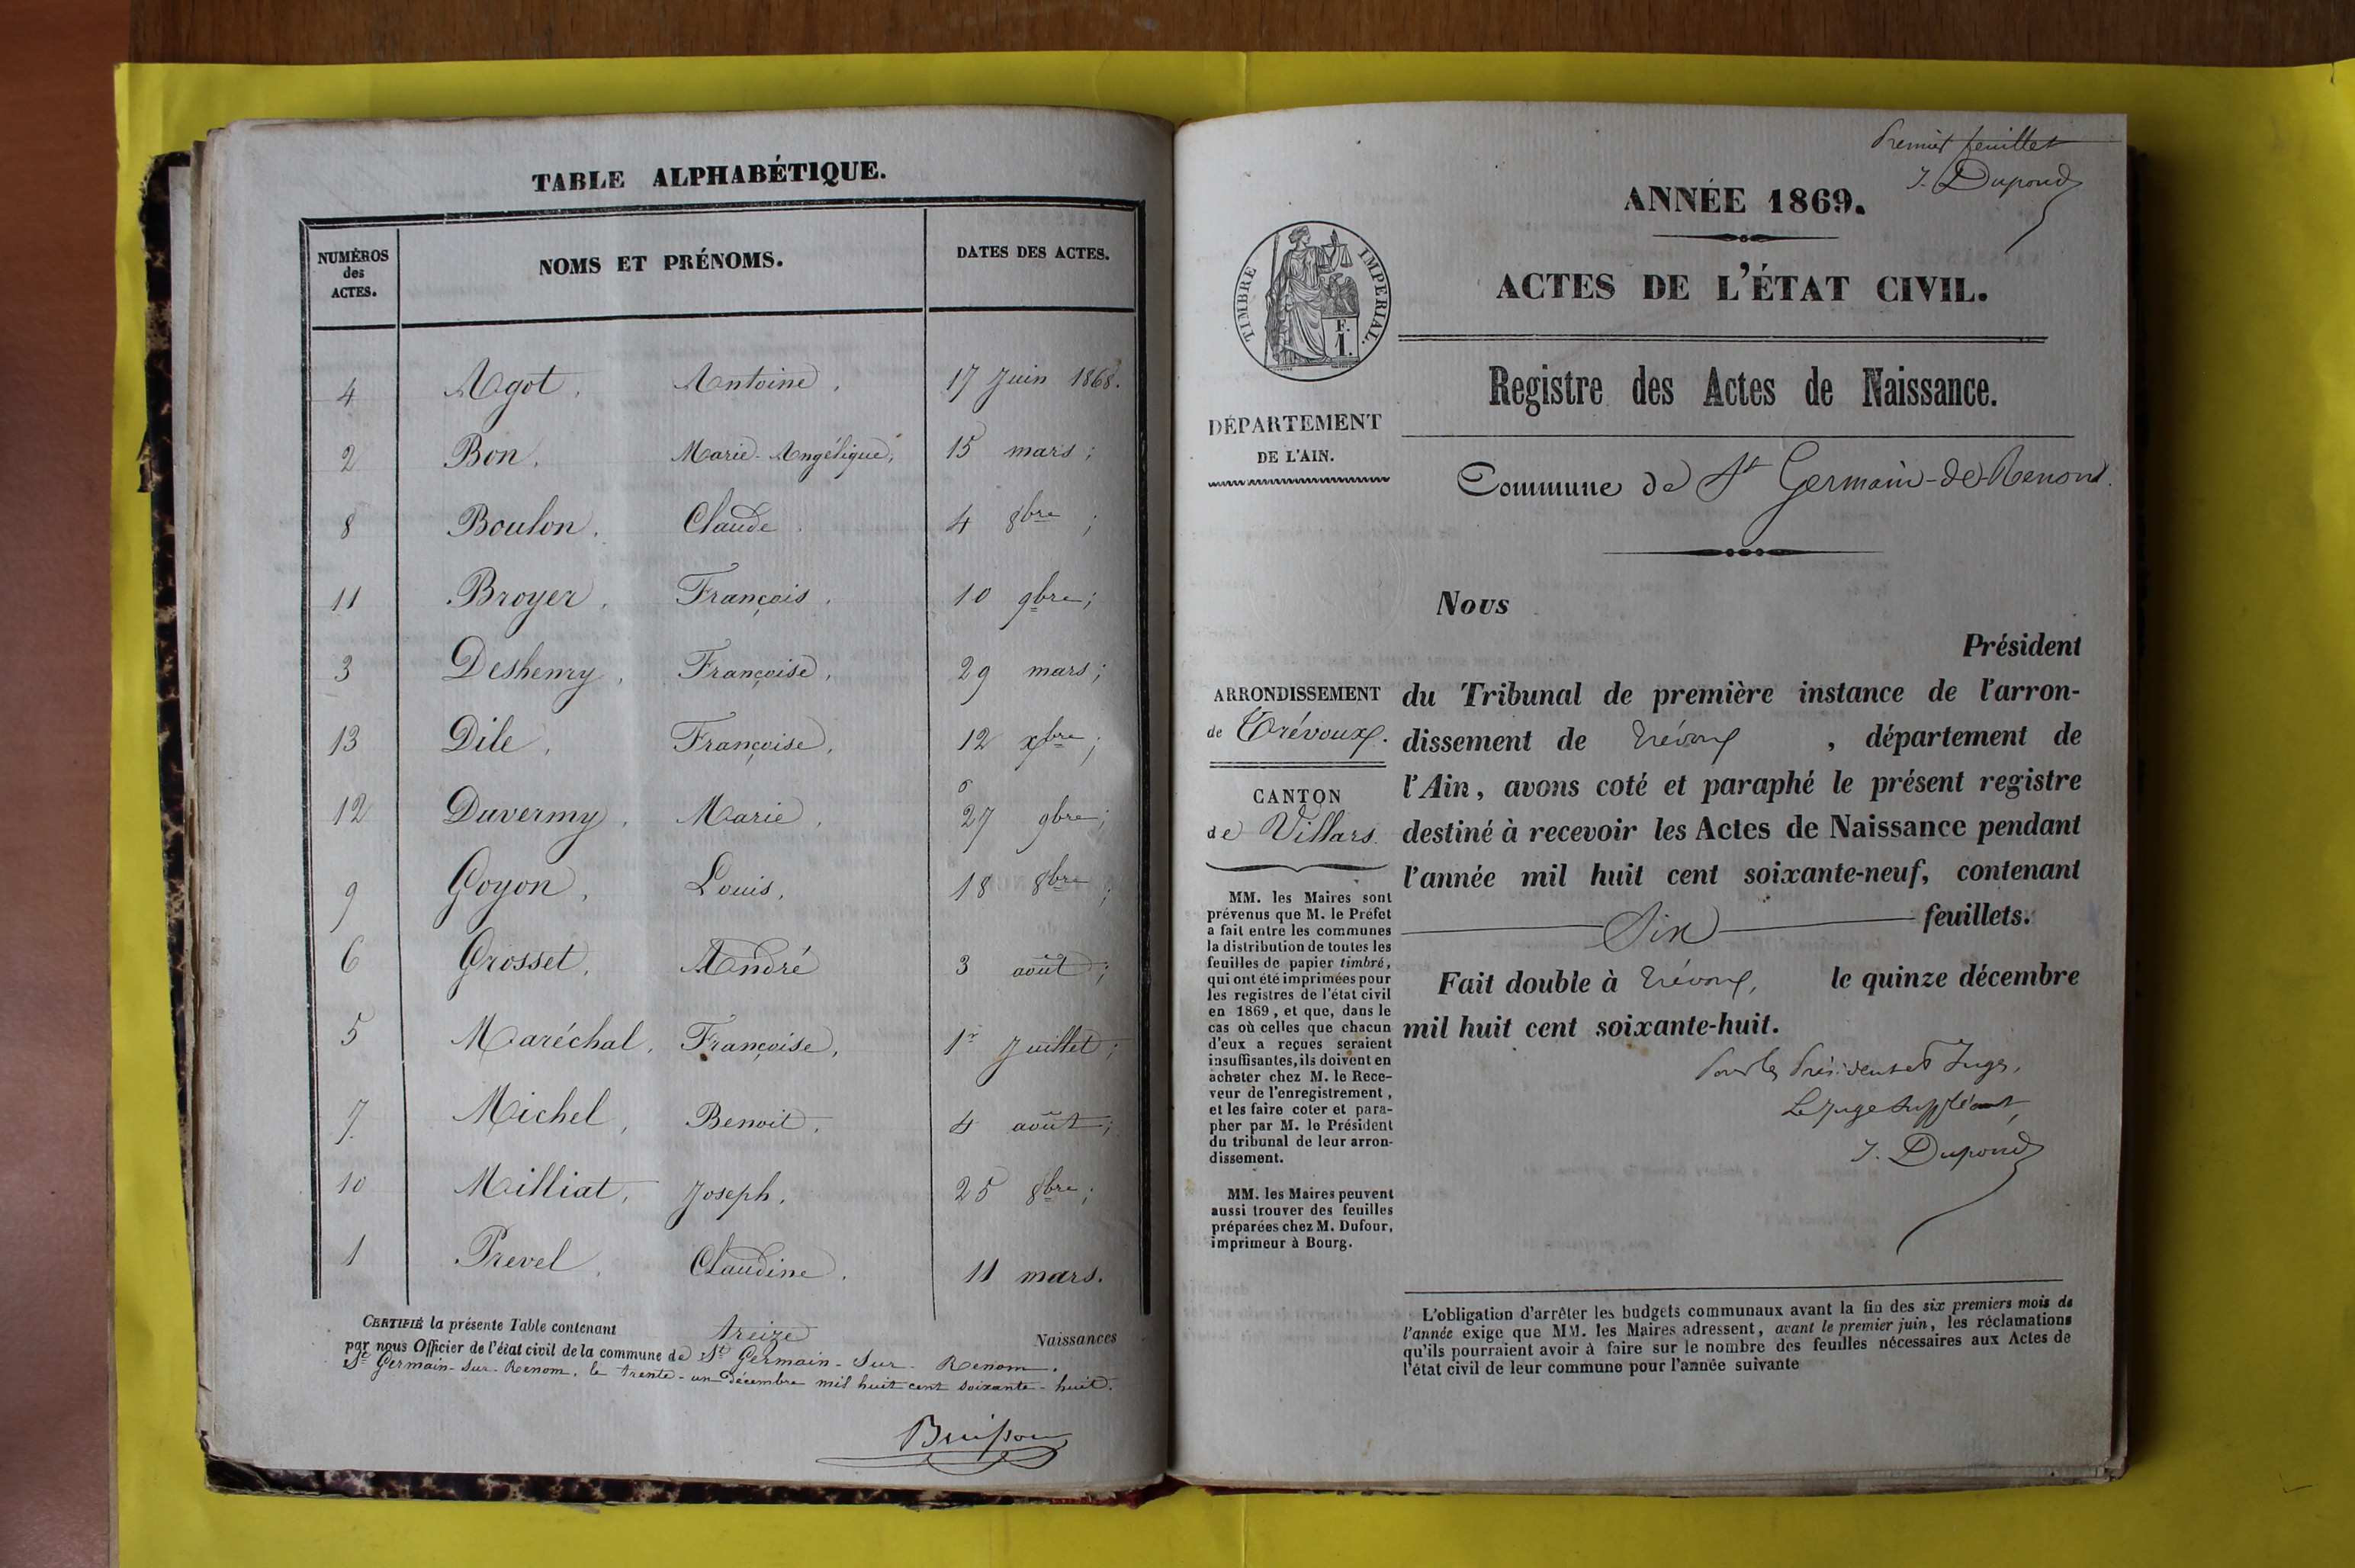 TABLE ALPHABÉTIQUE.
NUMÉROS des ACTES.
NOMS ET PRÉNOMS.
DATES DES ACTES.
4 Agot, Antoine, 17 Juin 1868.
2 Bon, Marie-Angélique, 15 mars;
8 Boulon, Claude, 4 8bre;
11 Broyer, François, 10 9bre;
3 Deshenry, Françoise, 29 mars;
13 Dile, Françoise, 12 xbre;
12 Duvermy, Marie, 27 9bre;
9 Goyon, Louis, 18 8bre;
6 Grosset, André 3 août;
5 Maréchal, Françoise, 1r Juillet;
7 Michel, Benoit, 4 août;
10 Milliat, Joseph, 25 8bre;
1 Prevel, Claudine, 11 mars.
CERTIFIÉ la présente Table contenant treize Naissances
par nous Officier de l'état civil de la commune de St Germain-sur-Renom.
St Germain-sur-Renom, le trente-un décembre mil huit cent soixante-huit.
Buisson
Premier feuillet
J. Dupond
ANNÉE 1869.
TIMBRE IMPERIAL.
F.
1.
ACTES DE L'ÉTAT CIVIL.
Registre des Actes de Naissance.
DÉPARTEMENT
DE L'AIN.
Commune de St Germain-de-Renom.
ARRONDISSEMENT
de Trévoux.
CANTON
de Villars.
MM. les Maires sont
prévenus que M. le Préfet
a fait entre les communes
la distribution de toutes les
feuilles de papier timbré,
qui ont été imprimées pour
les registres de l'état civil
en 1869, et que, dans le
cas où celles que chacun
d'eux a reçues seraient
insuffisantes, ils doivent en
acheter chez M. le Rece-
veur de l'enregistrement,
et les faire coter et para-
pher par M. le Président
du tribunal de leur arron-
dissement.
MM. les Maires peuvent
aussi trouver des feuilles
préparées chez M. Dufour,
imprimeur à Bourg.
Nous
Président
du Tribunal de première instance de l'arron-
dissement de Trévoux, département de
l'Ain, avons coté et paraphé le présent registre
destiné à recevoir les Actes de Naissance pendant
l'année mil huit cent soixante-neuf, contenant
Six feuillets.
Fait double à Trévoux, le quinze décembre
mil huit cent soixante-huit.
Pour les Président et Juges,
Le Juge suppléant,
J. Dupond
L'obligation d'arrêter les budgets communaux avant la fin des six premiers mois de
l'année exige que MM. les Maires adressent, avant le premier juin, les réclamations
qu'ils pourraient avoir à faire sur le nombre des feuilles nécessaires aux Actes de
l'état civil de leur commune pour l'année suivante